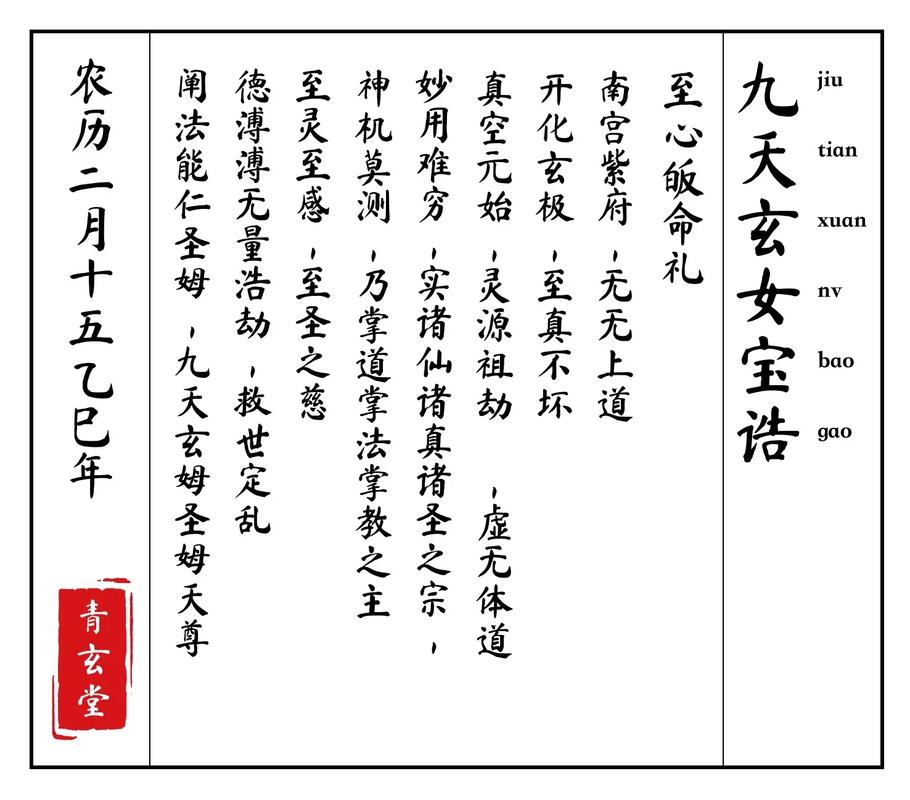 九天玄女宝诰
jiu
tian
xuan
nv
bao
gao
至心皈命礼
南宫紫府,无无上道
开化玄极,至真不坏
真空元始,灵源祖劫,虚无体道
妙用难穷,实诸仙诸真诸圣之宗,
神机莫测,乃掌道掌法掌教之主
至灵至感,至圣之慈
德溥溥无量浩劫,救世定乱
阐法能仁圣姆,九天玄姆圣姆天尊
农历二月十五乙巳年
青玄堂